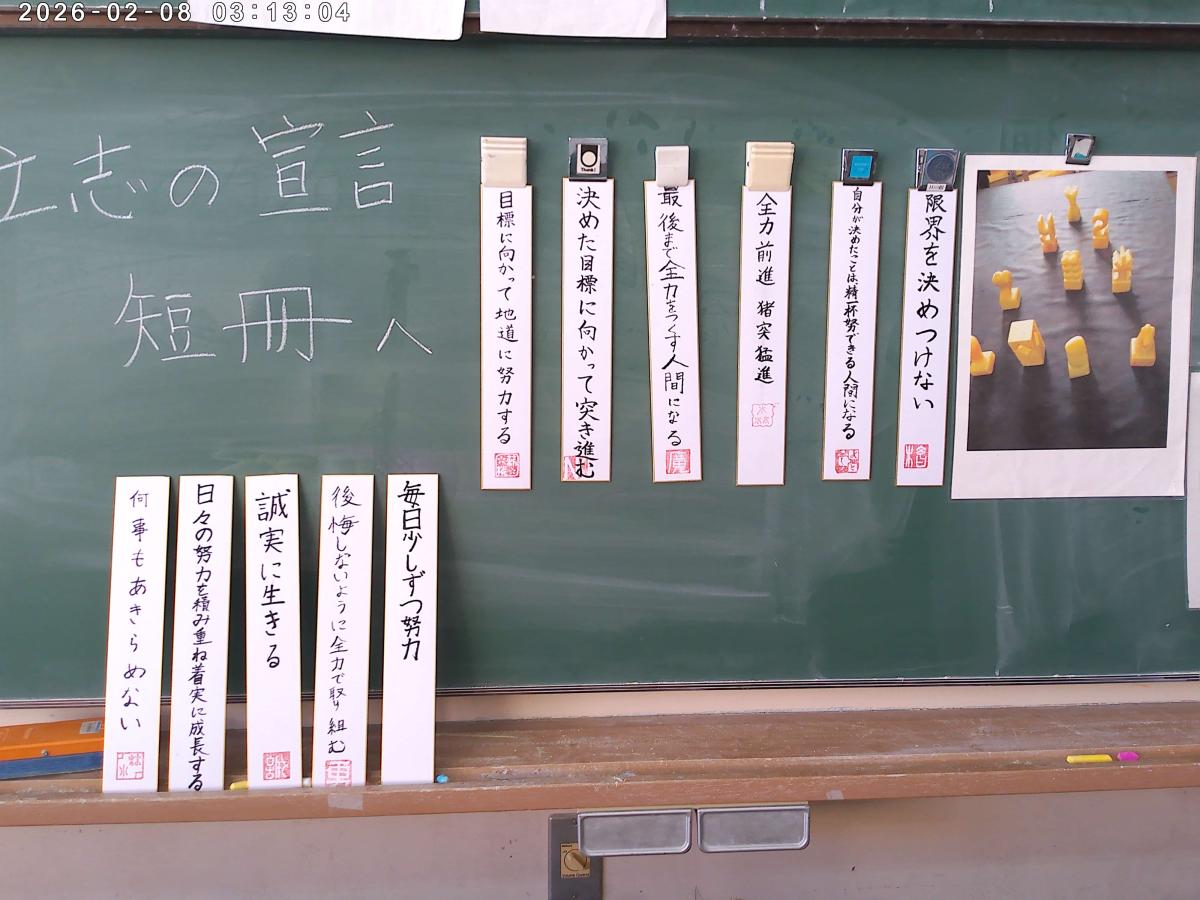 2026-02-08 03:13:04
立志の宣言
短冊へ
限界を決めつけない
自分が決めたことは精一杯努できる人間になる
全力前進 猪突猛進
最後まで全力をつくす人間になる
決めた目標に向かって突き進む
目標に向かって地道に努力する
毎日少しずつ努力
後悔しないように全力で取り組む
誠実に生きる
日々の努力を積み重ね着実に成長する
何事もあきらめない
Thank!